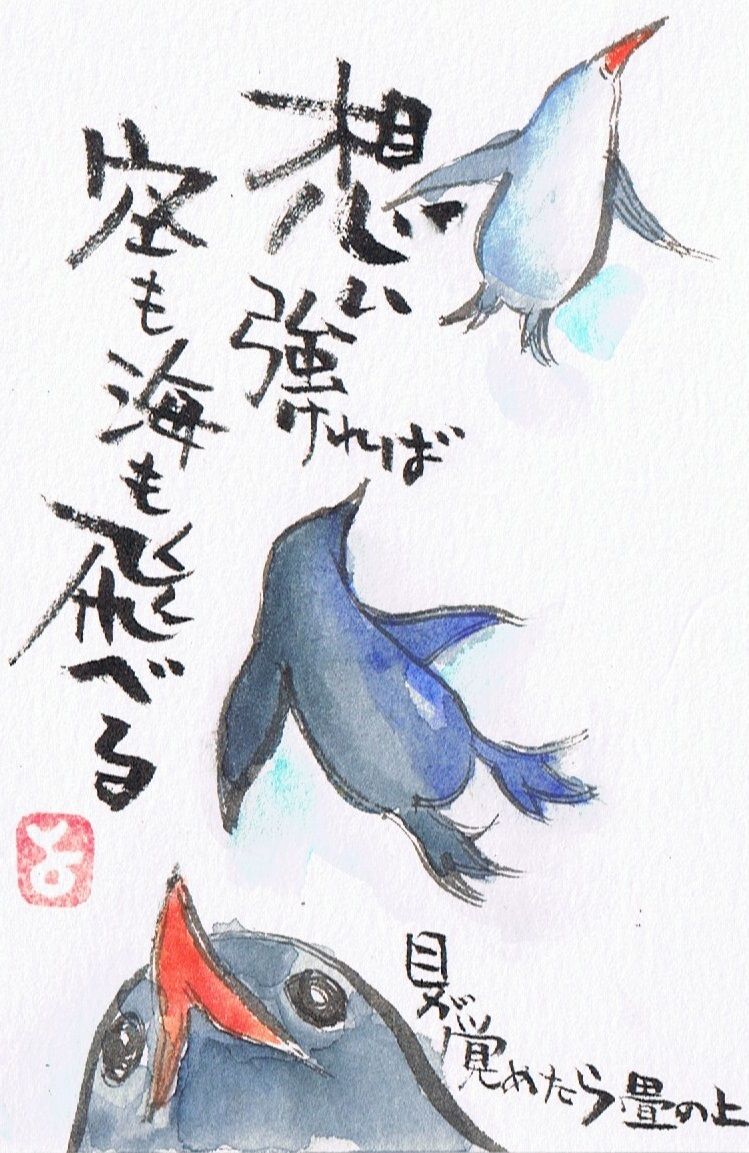 想い強ければ
空も海も飛べる
よ
目が覚めたら畳の上